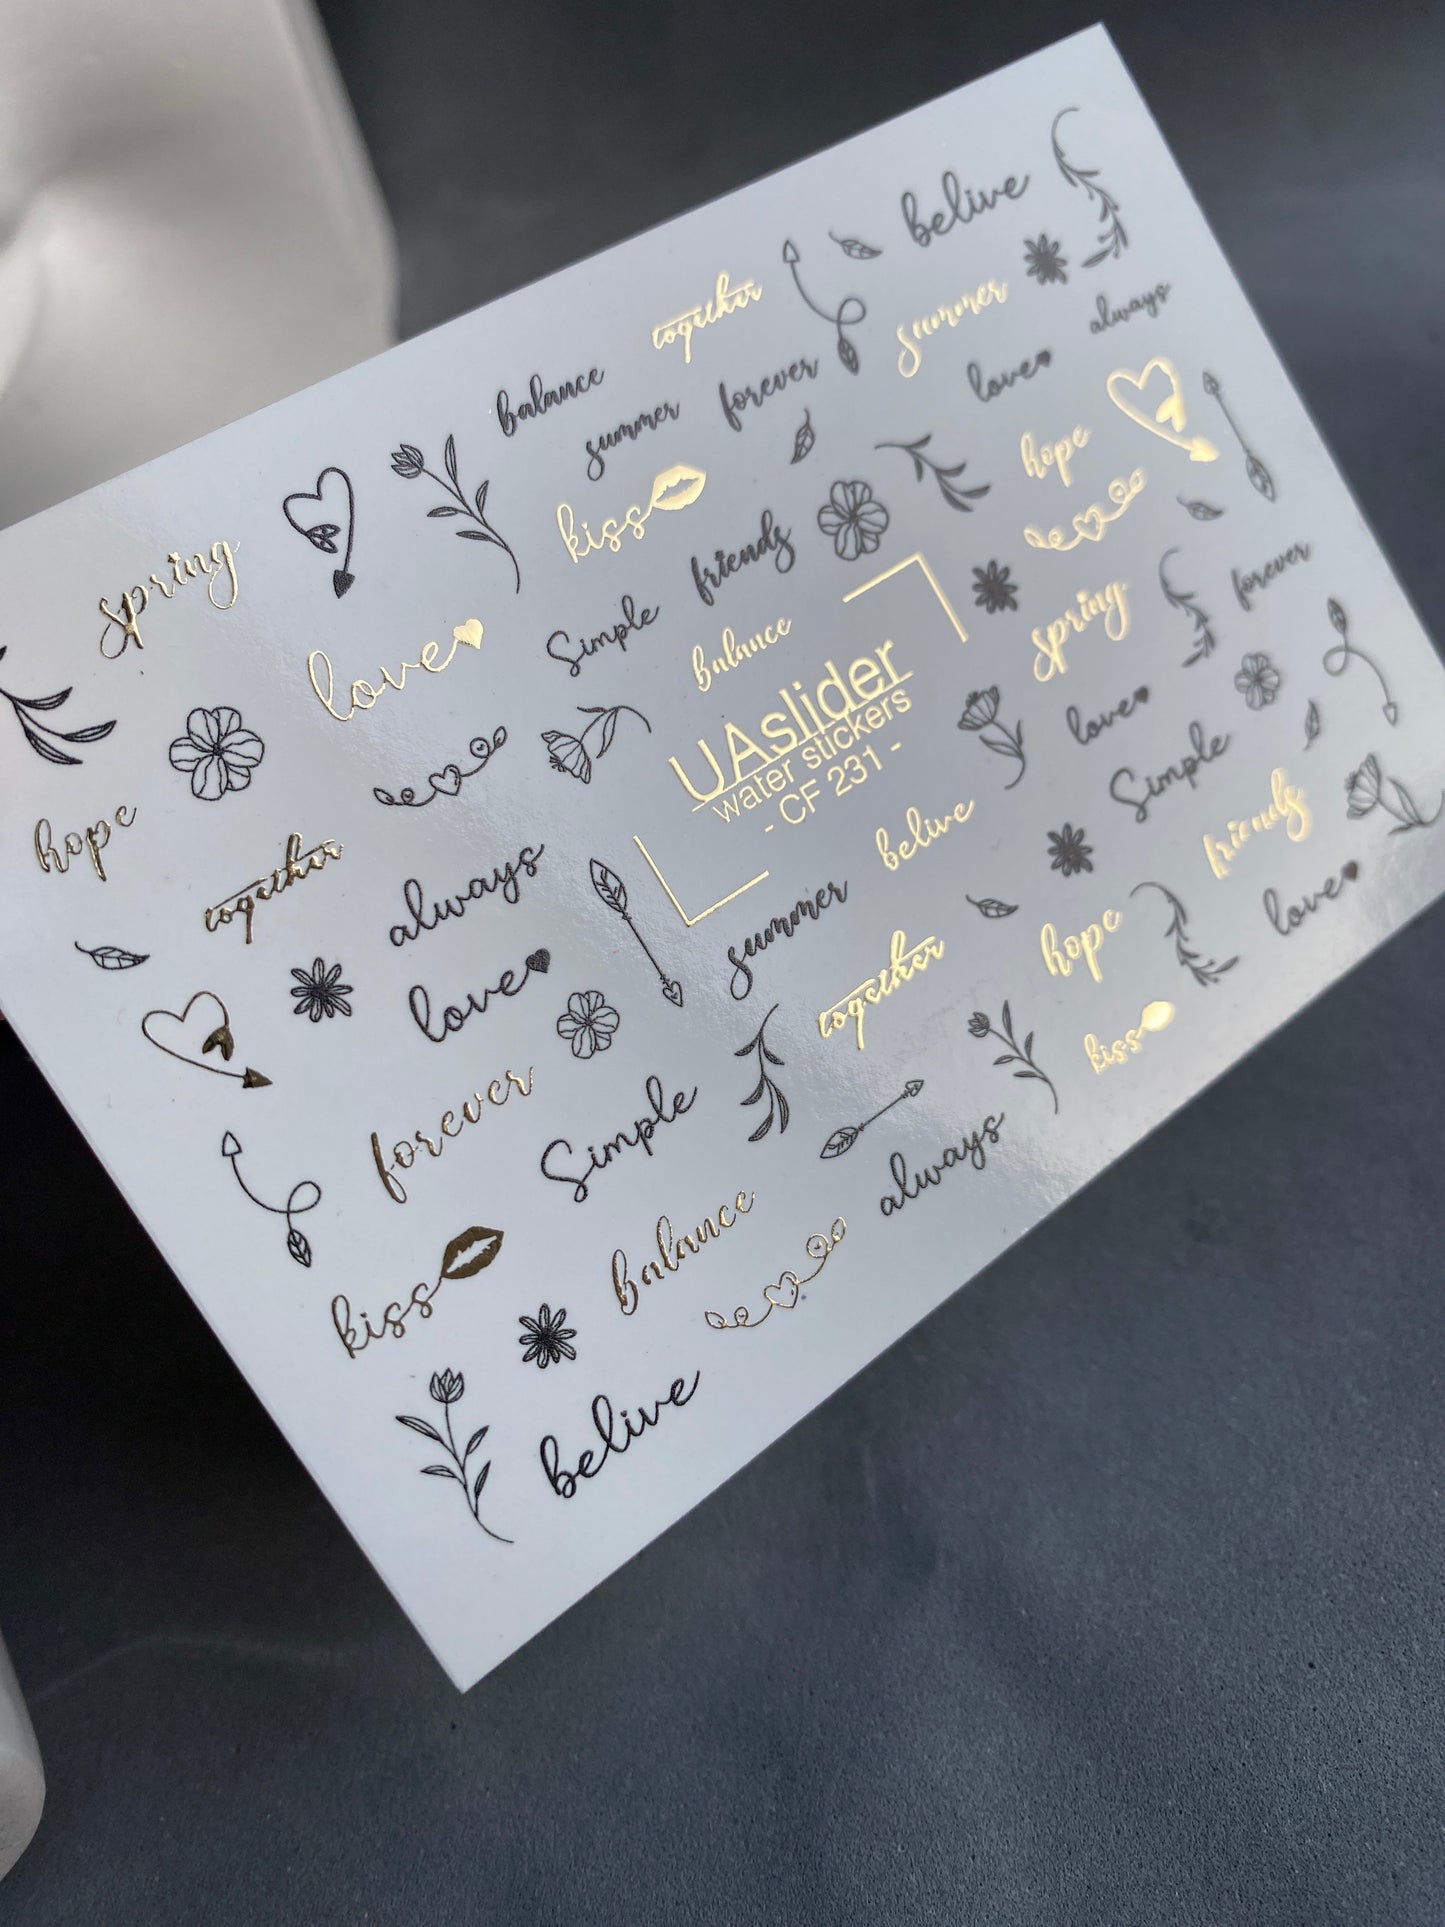 belive
together
always
summer
balance
forever
love
summer
hope
kiss
spring
friends
forever
Simple
balance
spring
love
love
UAslider
water stickers
- CF 231 -
Simple
hope
together
belive
friends
always
summer
hope
love
love
together
kiss
forever
Simple
always
balance
kiss
belive